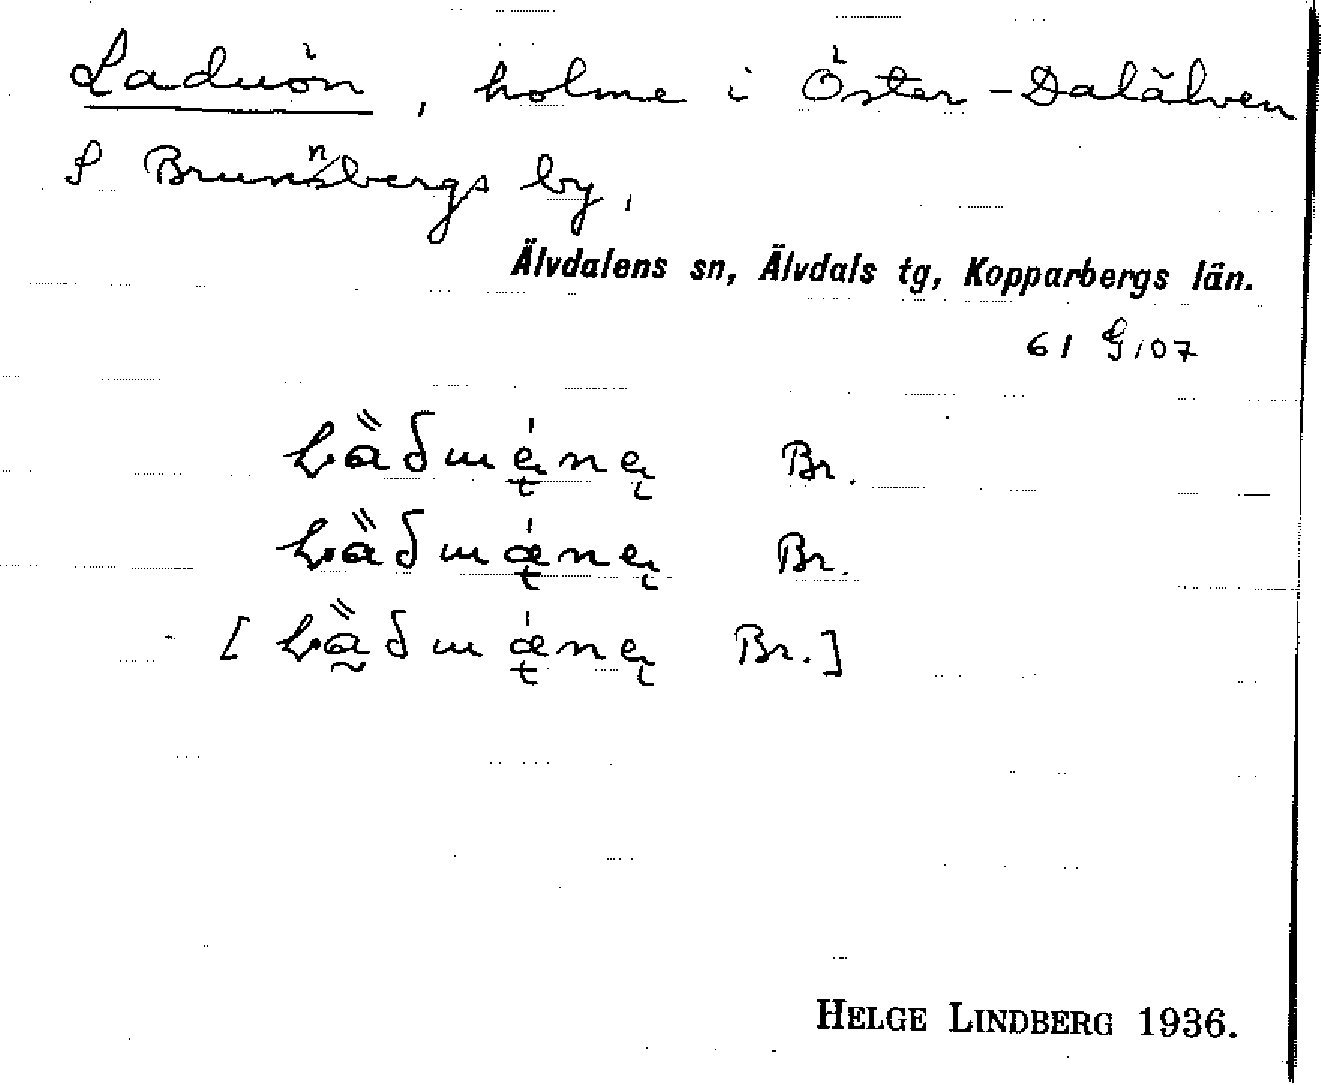 Laduön, holme i Öster-Dalälven
S Brunnsbergs by,
Älvdalens sn, Älvdals tg, Kopparbergs län.
61 G 107
Br.
Br.
[ Br.]
HELGE LINDBERG 1936.